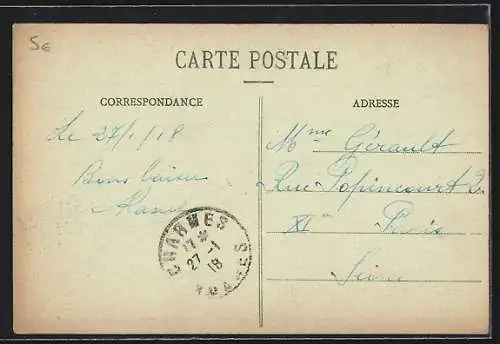 5€
CARTE POSTALE
CORRESPONDANCE
ADRESSE
Le 27/1/18
Bons baisers
CHARMES
17 *
27 -1
18
VOSGES
Mme Gérault
Rue Popincourt 2
XIe Paris
Seine